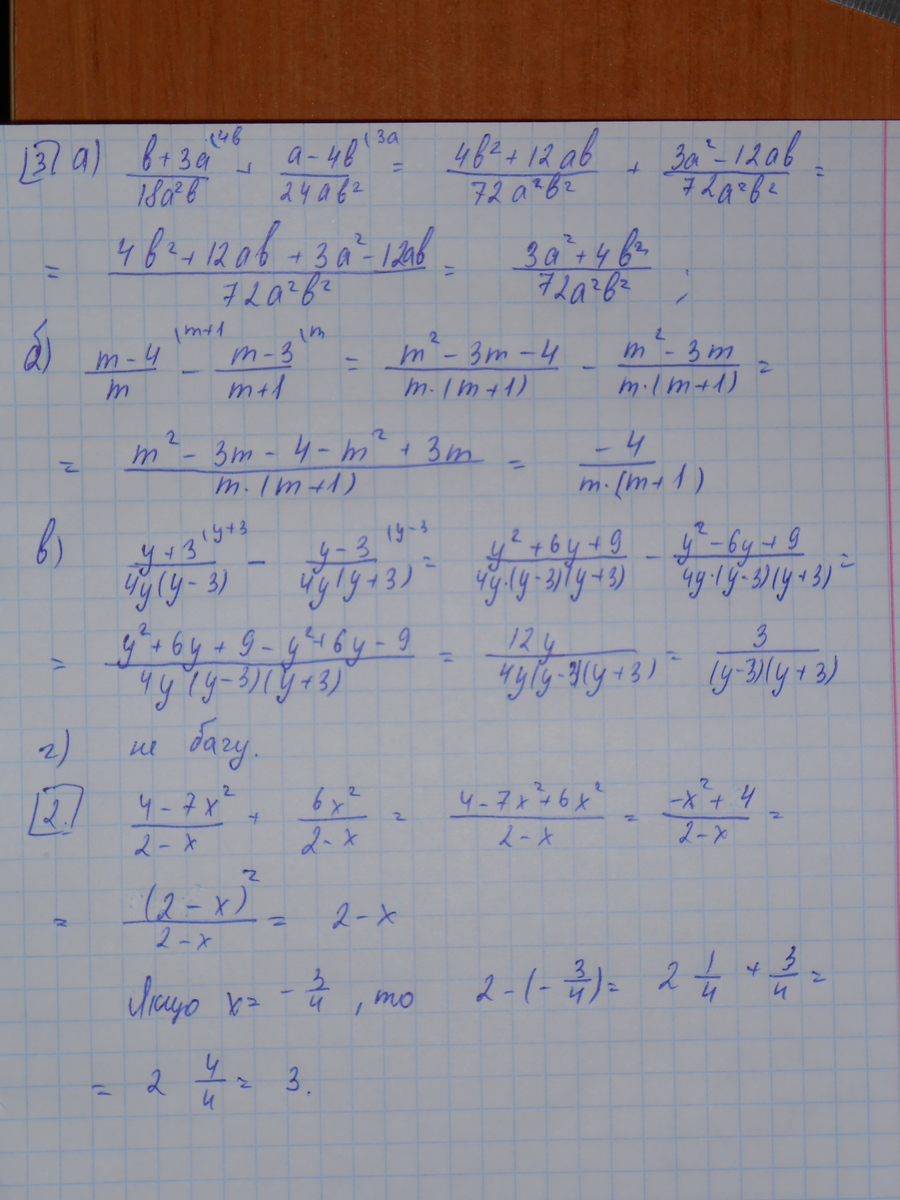 3 а) (в+3а)/(18а²в) (4в + (а-4в)/(24ав²) (3а = (4в²+12ав)/(72а²в²) + (3а²-12ав)/(72а²в²) =
= (4в²+12ав+3а²-12ав)/(72а²в²) = (3а²+4в²)/(72а²в²) ;
б) (m-4)/m (m+1 - (m-3)/(m+1) (m = (m²-3m-4)/(m·(m+1)) - (m²-3m)/(m·(m+1)) =
= (m²-3m-4-m²+3m)/(m·(m+1)) = (-4)/(m·(m+1))
в) (y+3)/(4y(y-3)) (y+3 - (y-3)/(4y(y+3)) (y-3 = (y²+6y+9)/(4y·(y-3)(y+3)) - (y²-6y+9)/(4y·(y-3)(y+3)) =
= (y²+6y+9-y²+6y-9)/(4y(y-3)(y+3)) = 12y/(4y(y-3)(y+3)) = 3/((y-3)(y+3))
г) не бачу.
2. (4-7x²)/(2-x) + 6x²/(2-x) = (4-7x²+6x²)/(2-x) = (-x²+4)/(2-x) =
= (2-x)²/(2-x) = 2-x
Якщо x= -3/4, то 2-(-3/4)= 2 1/4 + 3/4 =
= 2 4/4 = 3.